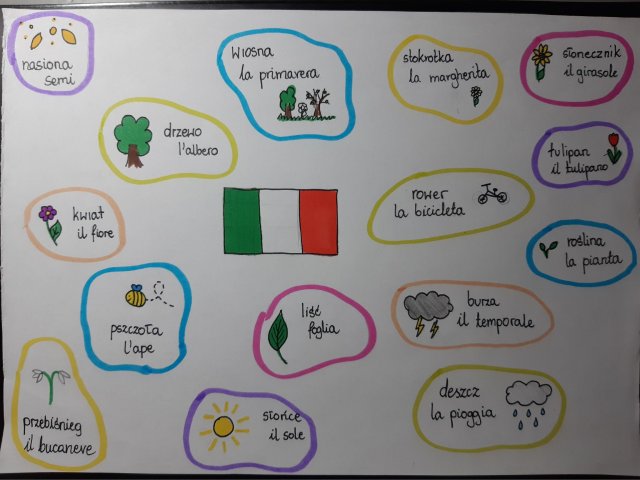 nasiona
semi
wiosna
la primavera
stokrotka
la margherita
słonecznik
il girasole
drzewo
l'albero
tulipan
il tulipano
kwiat
il fiore
rower
la bicicleta
roślina
la pianta
pszczoła
l'ape
liść
foglia
burza
il temporale
przebiśnieg
il bucaneve
słońce
il sole
deszcz
la pioggia